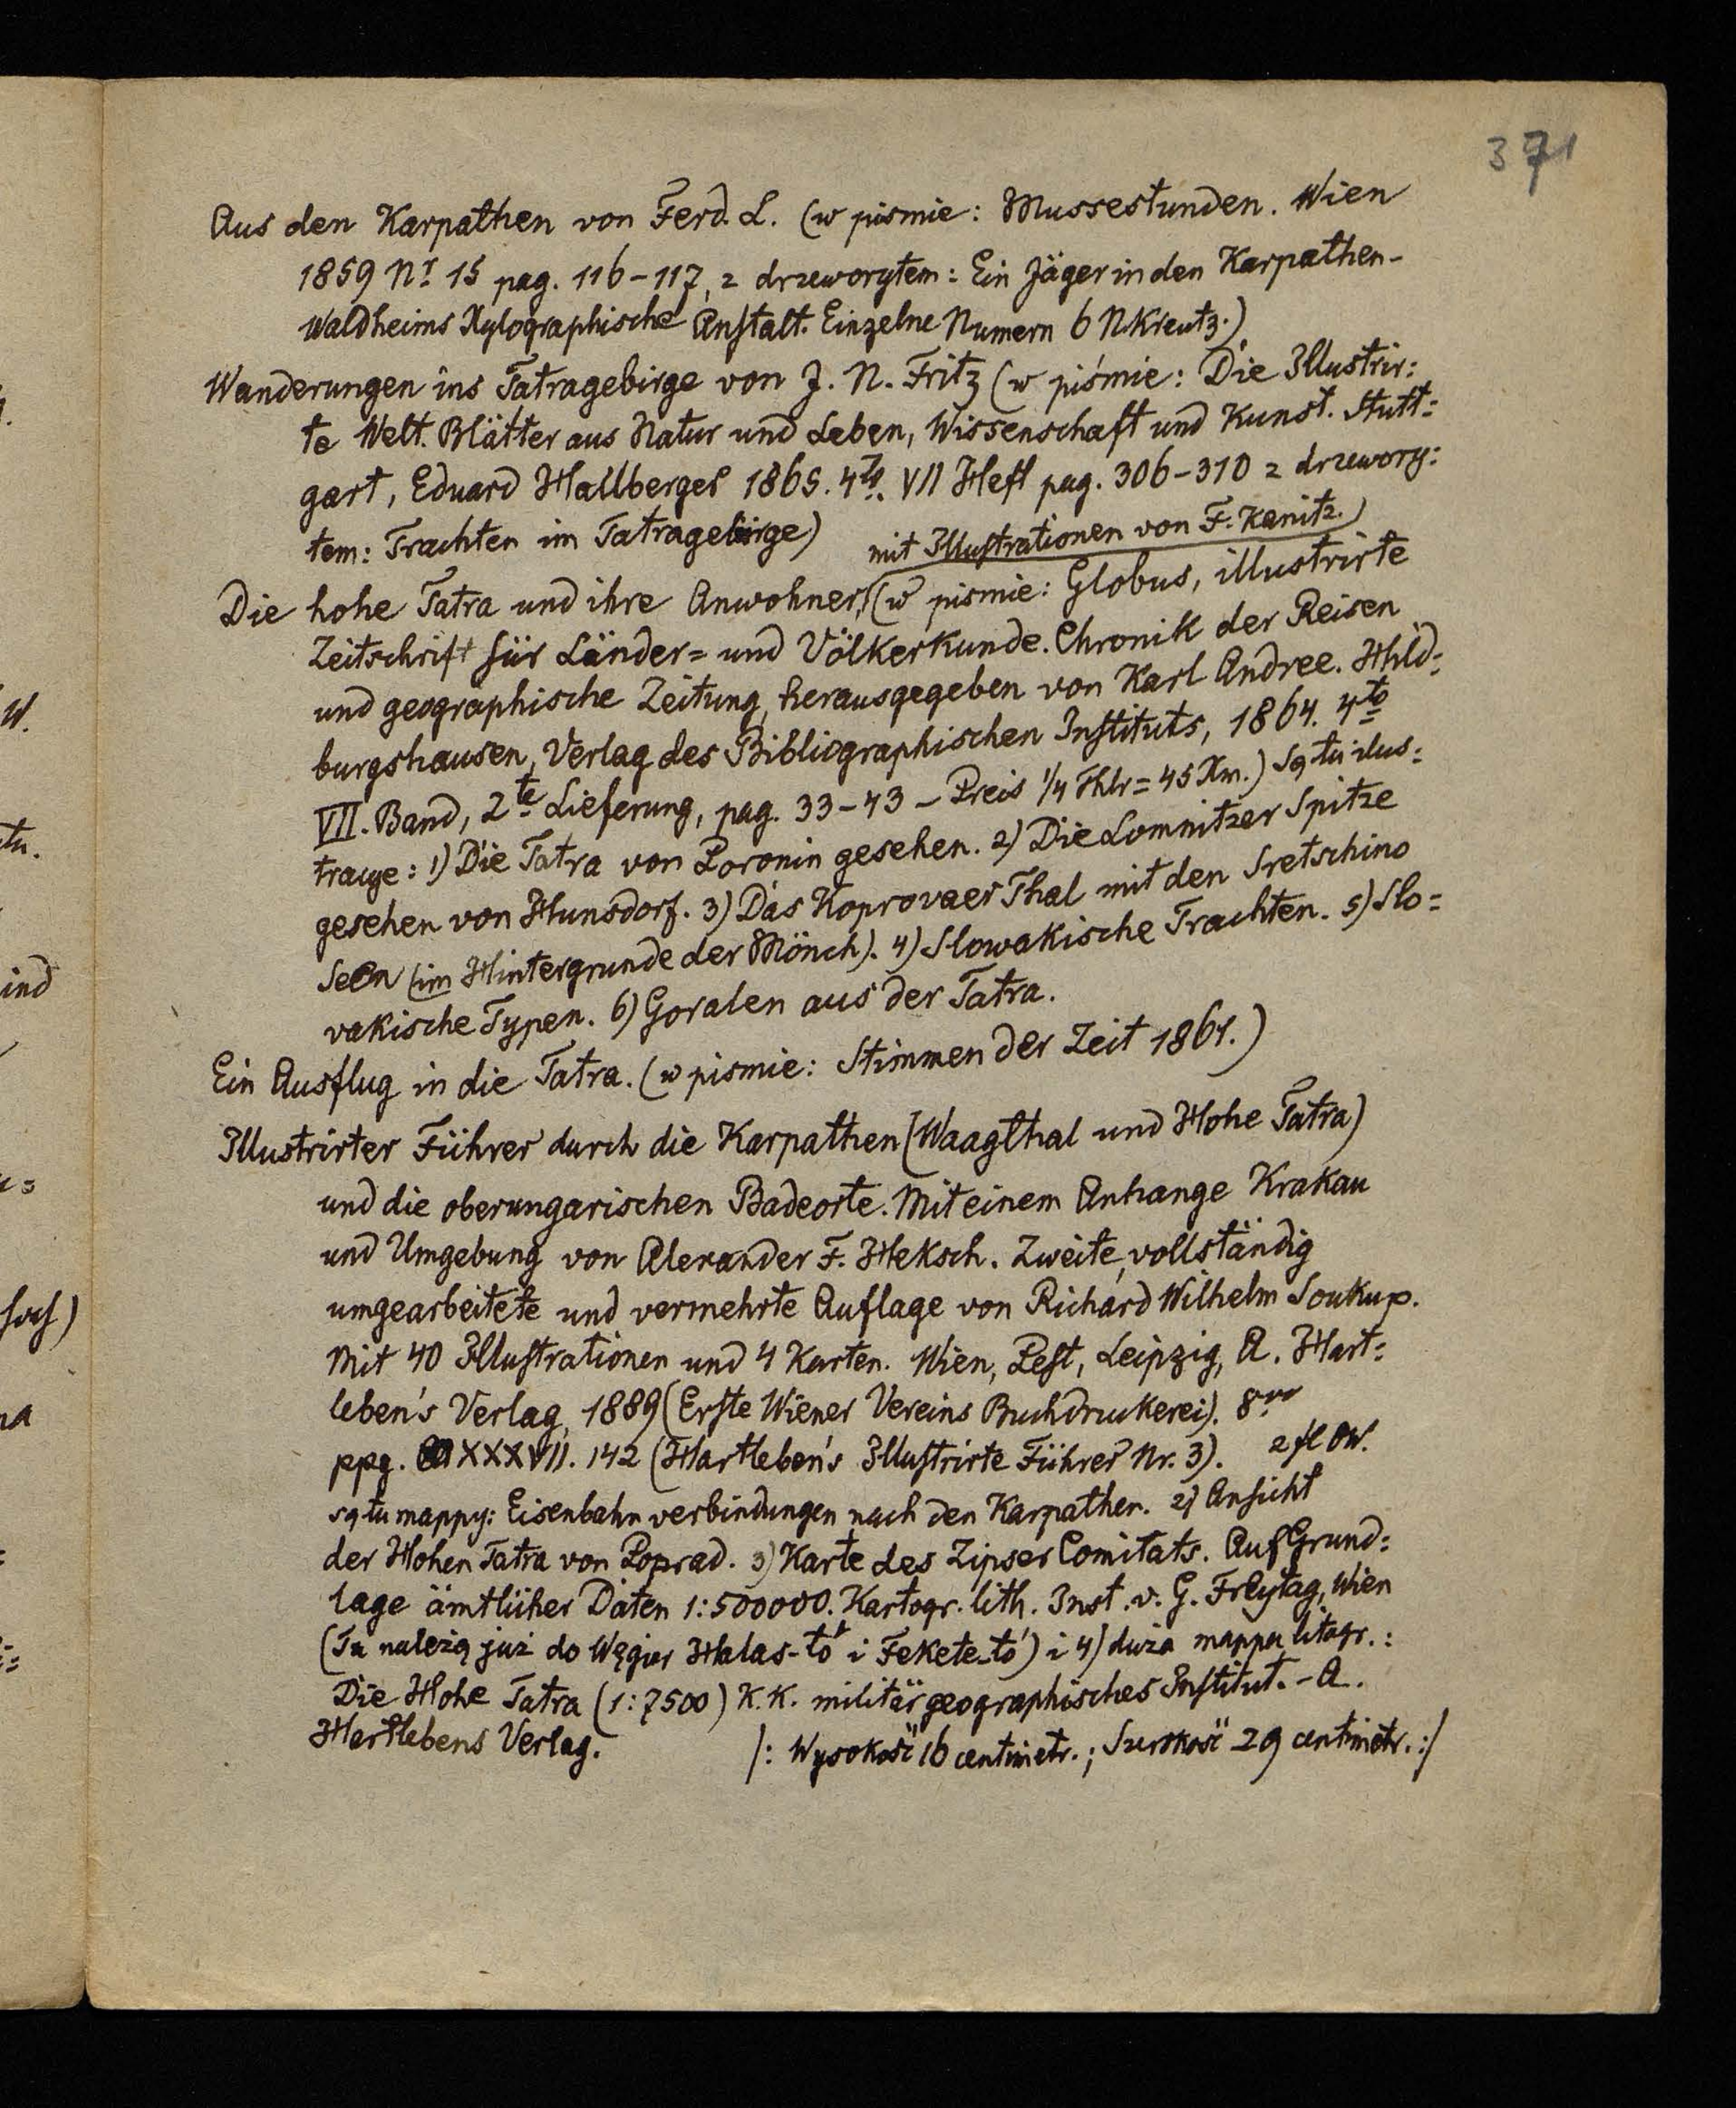 371
Aus den Karpathen von Ferd. L. (w pismie: Mussestunden. Wien
1859 Nr 15 pag. 116-117, z drzeworytem: Ein Jäger in den Karpathen-
Waldheims Xylographische Anstalt. Einzelne Numern 6 NKreutz.)
Wanderungen ins Tatragebirge von J. N. Fritz (w piśmie: Die Illustrir=
te Welt. Blätter aus Natur und Leben, Wissenschaft und Kunst. Stutt=
gart, Eduard Hallberger 1865. 4to. VII Heft pag. 306-310 z drzewory=
tem: Trachten im Tatragebirge)
mit Illustrationen von F. Kanitz.)
Die hohe Tatra und ihre Anwohner, (w pismie: Globus, illustrirte
Zeitschrift für Länder= und Völkerkunde. Chronik der Reisen
und geographische Zeitung, herausgegeben von Karl Andree. Hild=
burgshausen, Verlag des Bibliographischen Instituts, 1864. 4to
VII. Band, 2te Lieferung, pag. 33-43 - Preis 1/4 Thlr = 45 Xm.) Są tu ilus=
tracye: 1) Die Tatra von Poronin gesehen. 2) Die Lomnitzer Spitze
gesehen von Hunsdorf. 3) Das Koprovaer Thal mit den Sretschino
Seen (im Hintergrunde der Mönch). 4) Slowakische Trachten. 5) Slo=
vakische Typen. 6) Goralen aus der Tatra.
Ein Ausflug in die Tatra. (w pismie: Stimmen der Zeit 1861.)
Illustrirter Führer durch die Karpathen (Waagthal und Hohe Tatra)
und die oberungarischen Badeorte. Mit einem Anhange Krakau
und Umgebung von Alexander F. Heksch. Zweite, vollständig
umgearbeitete und vermehrte Auflage von Richard Wilhelm Soukup.
Mit 40 Illustrationen und 4 Karten. Wien, Pest, Leipzig, A. Hart=
leben's Verlag, 1889 (Erste Wiener Vereins Buchdruckerei). 8vo
ppg. XXXVII. 142 (Hartleben's Illustrirte Führer Nr. 3). 2 fl OW.
są tu mappy: Eisenbahn verbindungen nach den Karpathen. 2) Ansicht
der Hohen Tatra von Poprad. 3) Karte des Zipser Comitats. Auf Grund=
lage ämtlicher Daten 1:500000. Kartogr. lith. Inst. v. G. Freytag, Wien
(Tu należą już do Węgier Halas-tó i Fekete-tó) i 4) duża mappa litogr.:
Die Hohe Tatra (1:7500) K.K. militärgeographisches Institut. - A.
Hartlebens Verlag. /: Wysokość 16 centimetr.; Szerokość 29 centimetr. :/